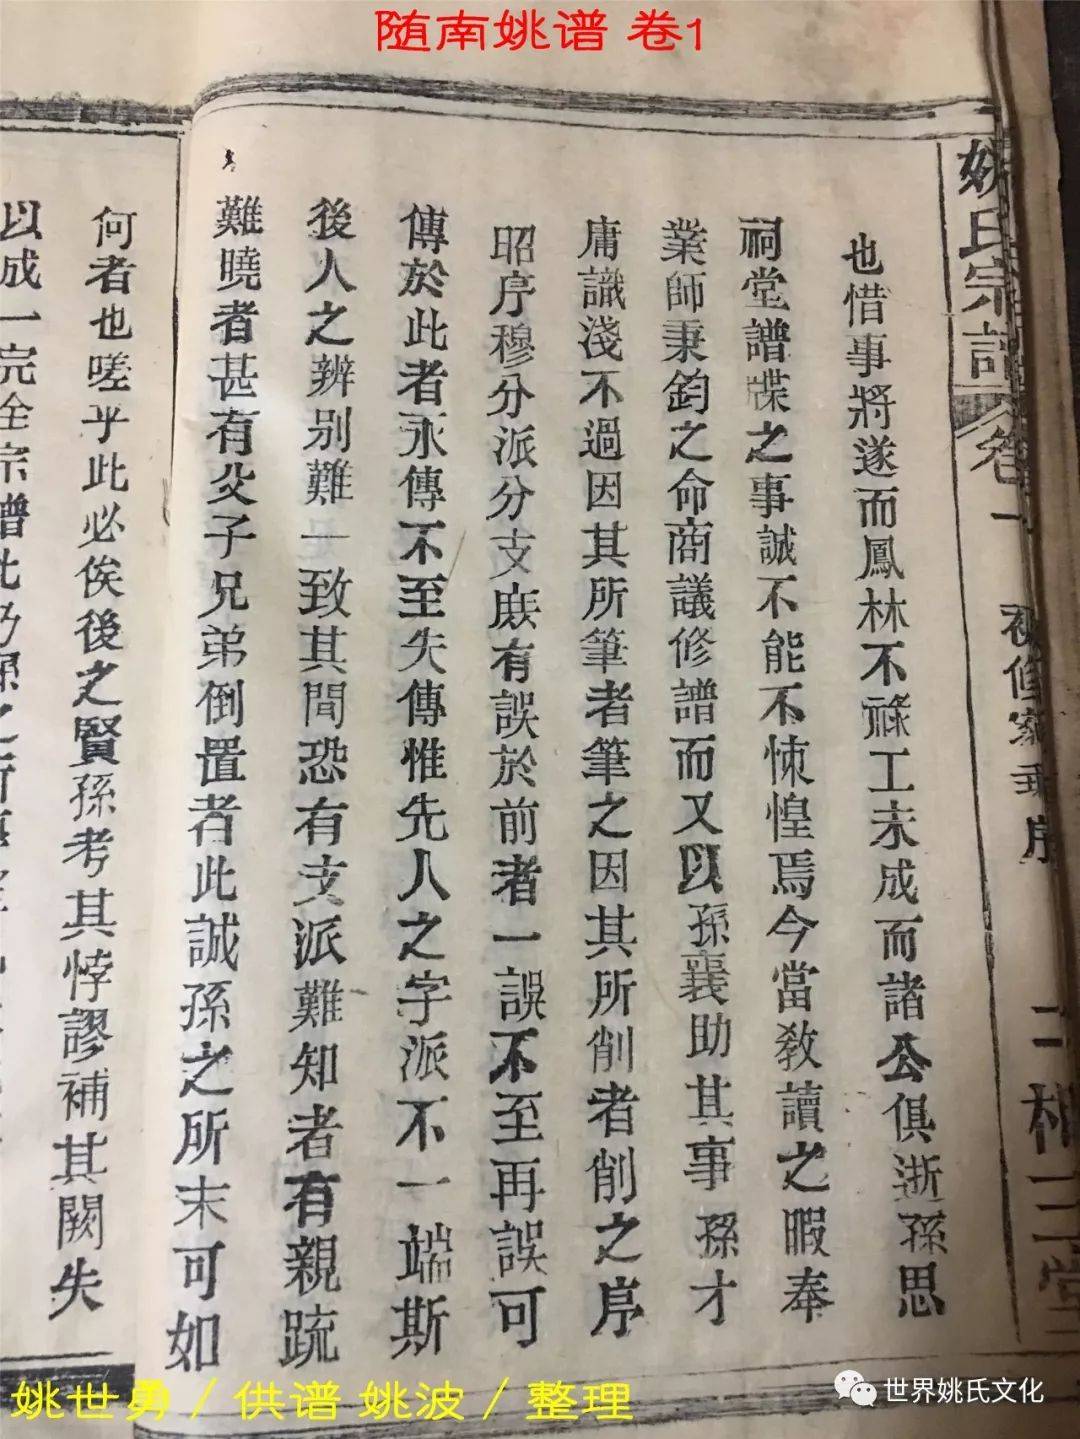 随南姚谱 卷1
姚氏宗譜 卷一 初修家乘序
也惜事將遂而鳳林不祿工未成而諸公俱逝孫思
祠堂譜牒之事誠不能不悚惶焉今當教讀之暇奉
業師秉鈞之命商議修譜而又以孫襄助其事孫才
庸識淺不過因其所筆者筆之因其所削者削之序
昭序穆分派分支庶有誤於前者一誤不至再誤可
傳於此者永傳不至失傳惟先人之字派不一端斯
後人之辨别難一致其間恐有支派難知者有親疏
難曉者甚有父子兄弟倒置者此誠孫之所末可如
何者也嗟乎此必俟後之賢孫考其悖謬補其闕失
以成一完全宗譜此乃孫之所
姚世勇／供谱 姚波／整理
世界姚氏文化